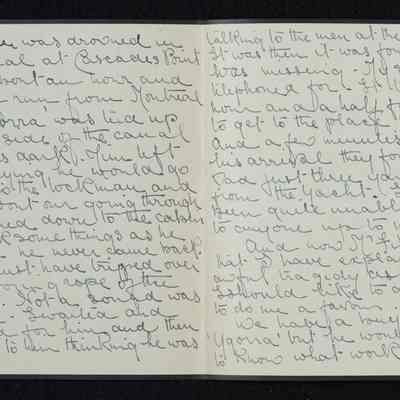 was drowned in
al at Cascades Point
about an hour and
run from Montreal
was tied up
side of the canal
as dark. Jim left
ying he would go
to the lockman and
about our going through
ed down to the cabin
some things as he
he never came back
ust have tripped over
rope of the
Not a sound was
I waited and
d for him and then
to him thinking he was
talking to the men at the
It was then it was fou
was missing.
telephoned for
hour and a half fo
to get to the place
And a few minutes
his arrival they fo
Dad just three ya
from the Yacht.
been quite unable
to anyone up to
And now
that I have explai
awful tragedy
I should like to a
to do me a favour
We have a
"Ygorra" but he wou
to know what work